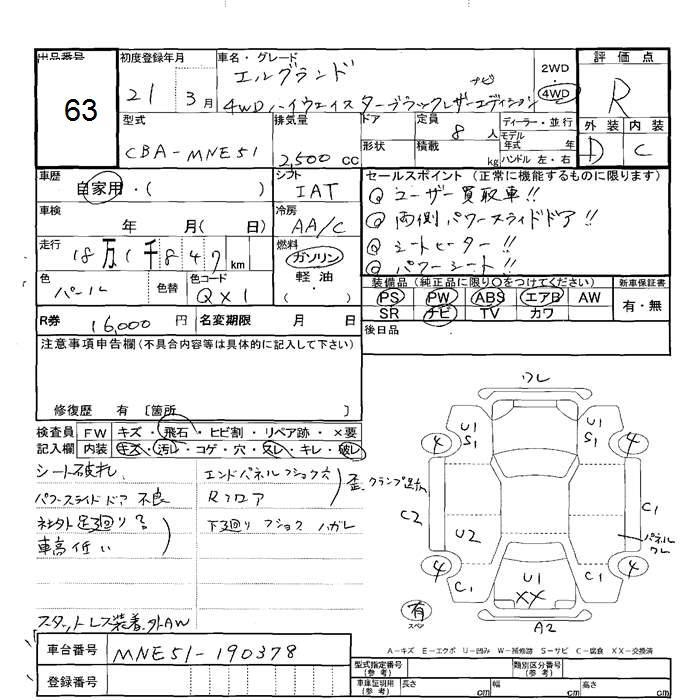 出品番号
63
初度登録年月
21 3月
車名・グレード
エルグランド
ナビ
4WDハイウェイスターブラックレザーエディション
2WD
・
4WD
評価点
R
外装 内装
D C
型式
CBA-MNE51
排気量
2,500 cc
ドア
形状
定員 8人
積載 kg
ディーラー・並行
モデル
年式 年
ハンドル 左・右
車歴
自家用・( )
シフト
IAT
車検
年 月( 日)
冷房
AA/C
走行
18万1千847km
燃料
ガソリン
軽油
・( )
色
パール
色替
色コード
QX1
セールスポイント (正常に機能するものに限ります)
Q ユーザー買取車!!
Q 両側パワースライドドア!!
Q シートヒーター!!
Q パワーシート!!
装備品 (純正品に限り○をつけてください)
新車保証書
PS PW ABS エアB AW
SR ナビ TV カワ
有・無
R券 16,000円
名変期限 月 日
後日品
注意事項申告欄(不具合内容等は具体的に記入して下さい)
修復歴 有 [箇所 ]
検査員 FW キズ・飛石・ヒビ割・リペア跡・×要
記入欄 内装 キズ・汚レ・コゲ・穴・スレ・キレ・破レ
シート破れ
パワースライドドア不良
車高低い
スタットレス装着.外AW
エンドパネルプショウ穴
Rフロア
歪.クランプ跡
下回り フショク ハガレ
ワレ
U1
S1
U1
S1
4
4
C2
U2
C1
パネル
ワレ
4
4
C1
U1
XX
C1
有
スペア
A2
A-キズ E-エクボ U-凹み W-補修跡 S-サビ C-腐食 XX-交換済
車台番号 MNE51-190378
登録番号
型式指定番号
(参考)
類別区分番号
(参考)
車庫証明用
(参考)
長さ cm 幅 cm 高さ cm